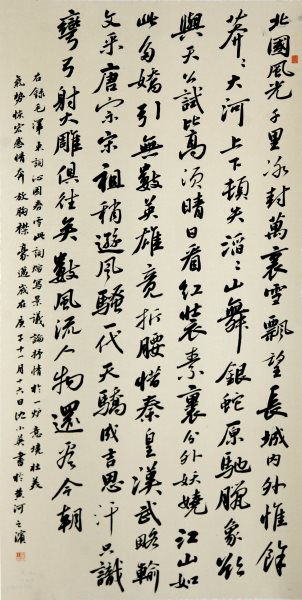 北國風光千里冰封萬裏雪飄望長城內外惟餘
莽〻大河上下頓失滔〻山舞銀蛇原馳臘象欲
與天公試比高須晴日看紅裝素裹分外妖嬈江山如
此多嬌引無數英雄竟折腰惜秦皇漢武略輸
文采唐宗宋祖稍遜風騷一代天驕成吉思汗只識
彎弓射大雕俱往矣數風流人物還看今朝
右錄毛澤東詞沁園春雪此詞熔寫景議論抒情於一爐意境壯美
氣勢恢宏感情奔放胸襟豪邁歲在庚子十一月十六日沈小書於黃河之濱